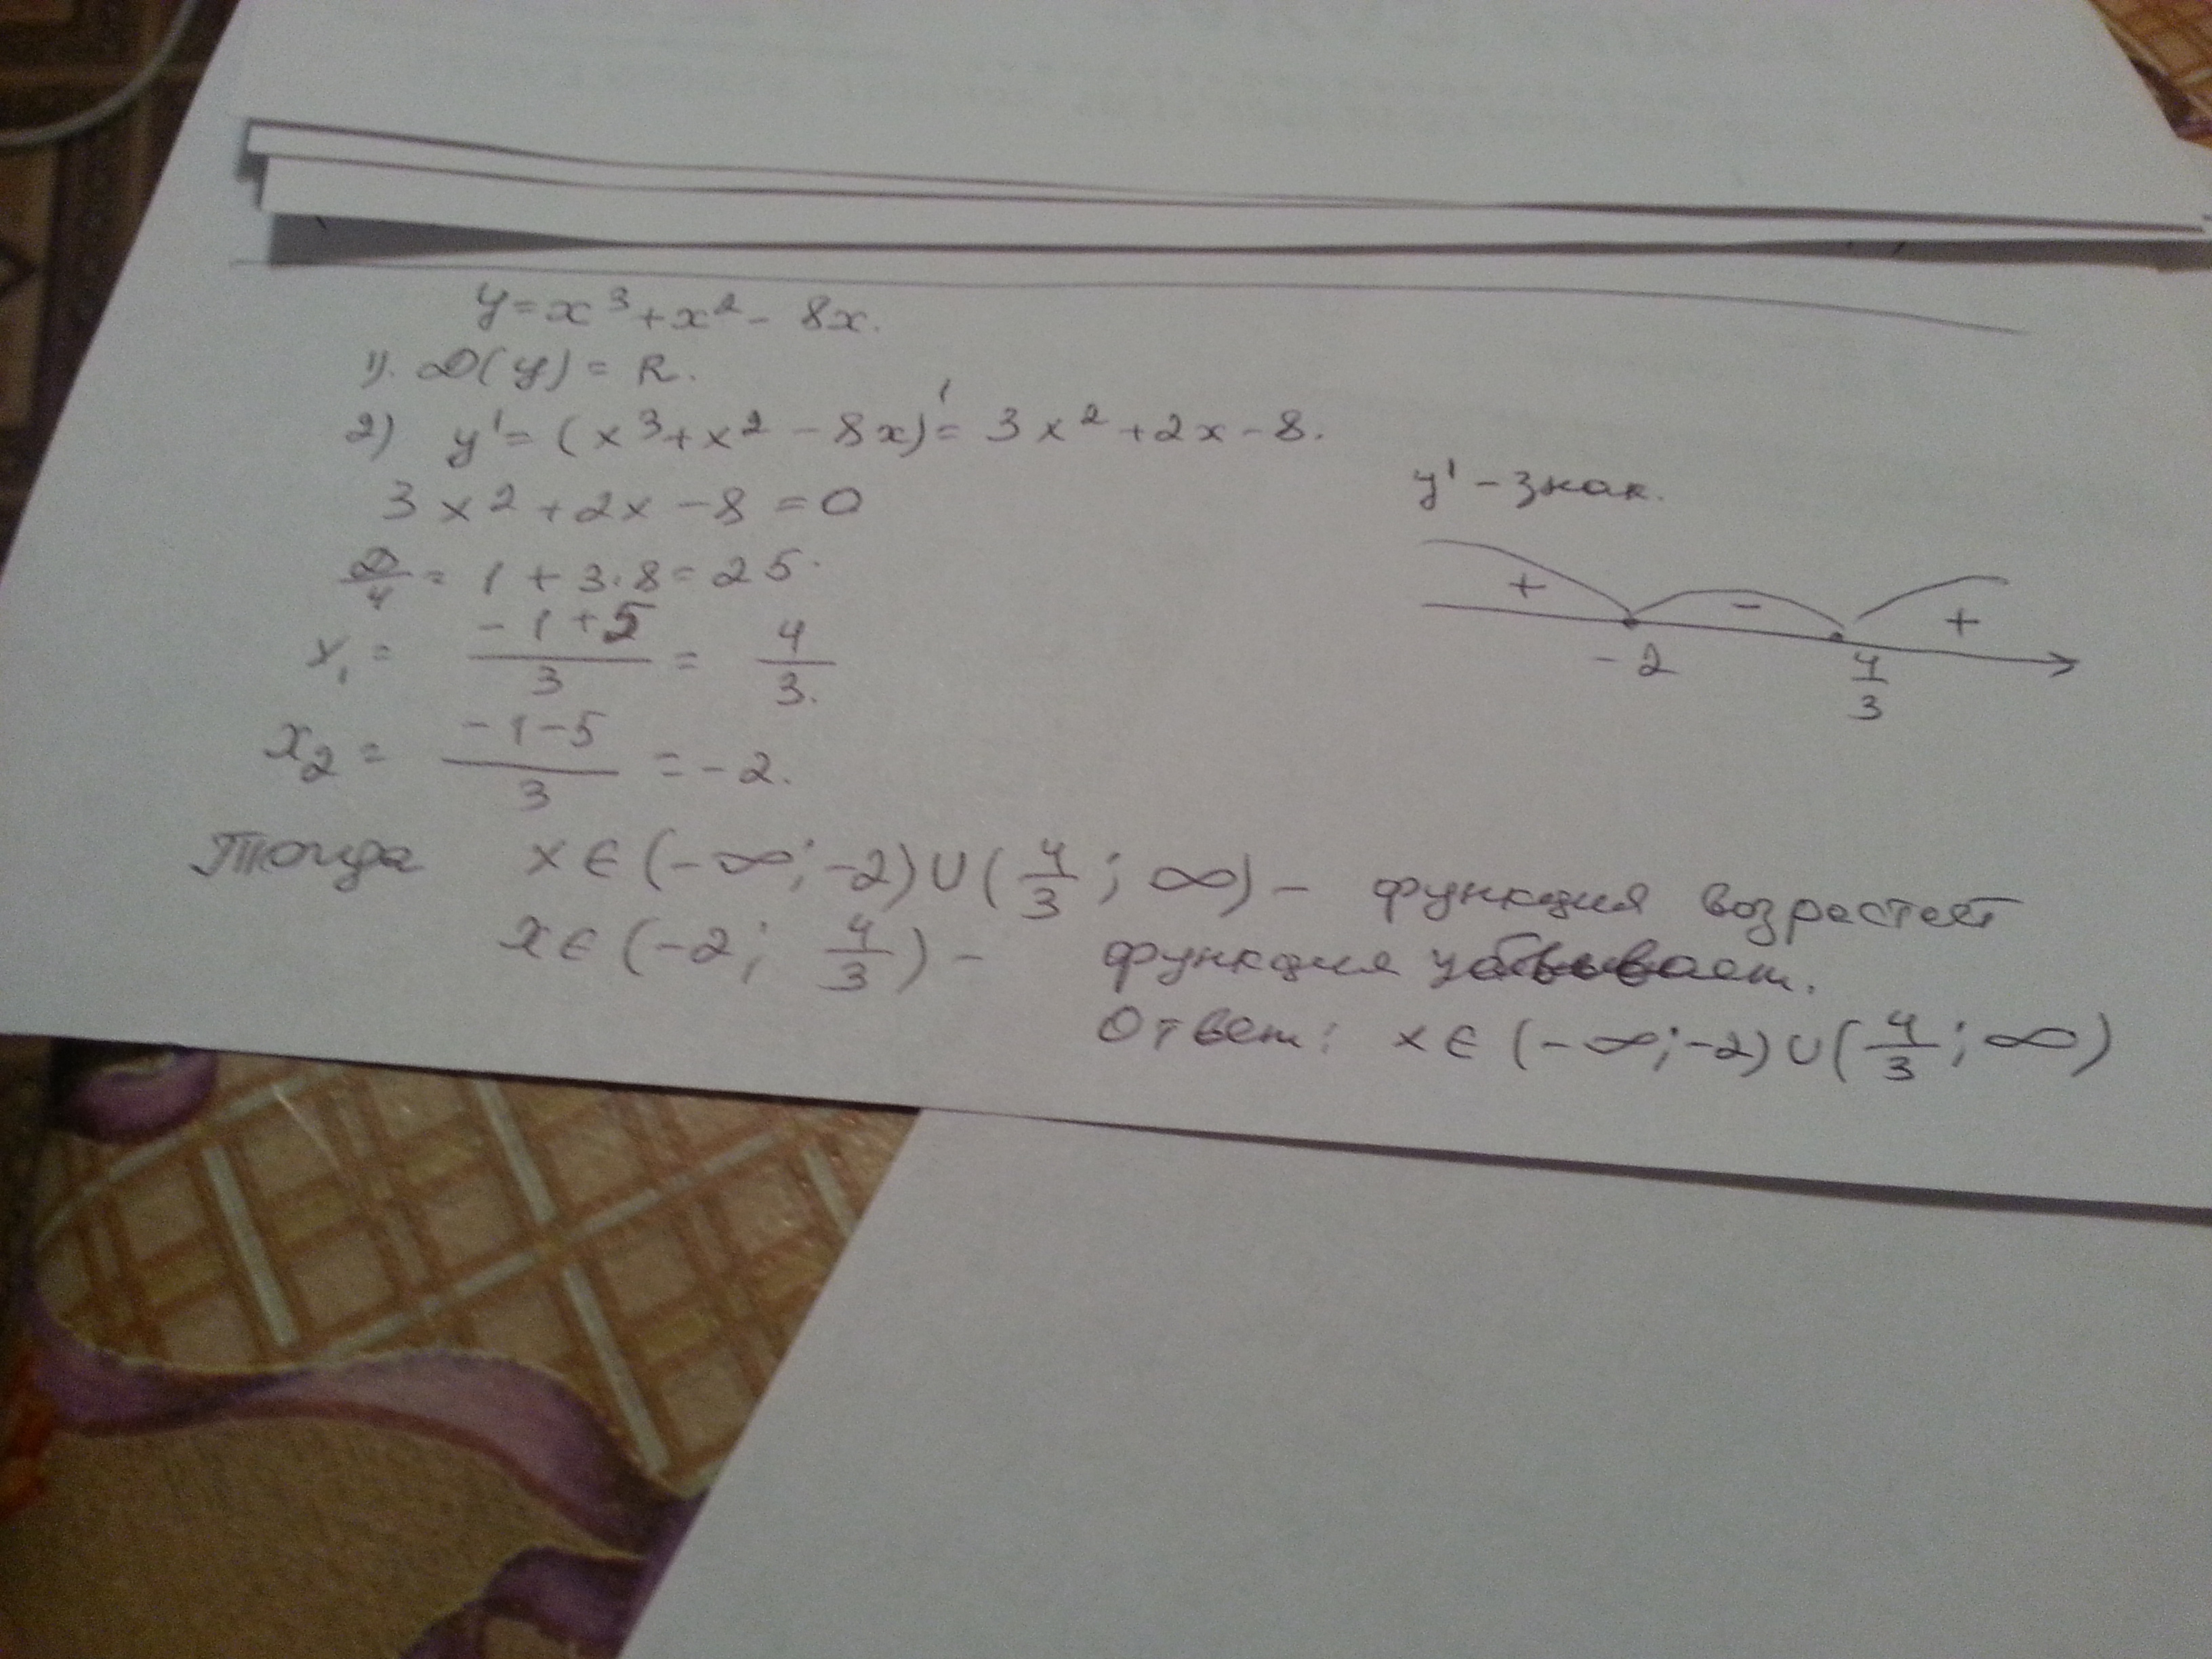 y = x³ + x² - 8x.
1). D(y) = R.
2) y' = (x³ + x² - 8x)' = 3x² + 2x - 8.
3x² + 2x - 8 = 0
D/4 = 1 + 3·8 = 25.
x₁ = (-1+5)/3 = 4/3.
x₂ = (-1-5)/3 = -2.
y' - знак.
+ - +
-2 4/3
Тогда x ∈ (-∞; -2) ∪ (4/3; ∞) - функция возрастает
x ∈ (-2; 4/3) - функция убывает.
Ответ: x ∈ (-∞; -2) ∪ (4/3; ∞)